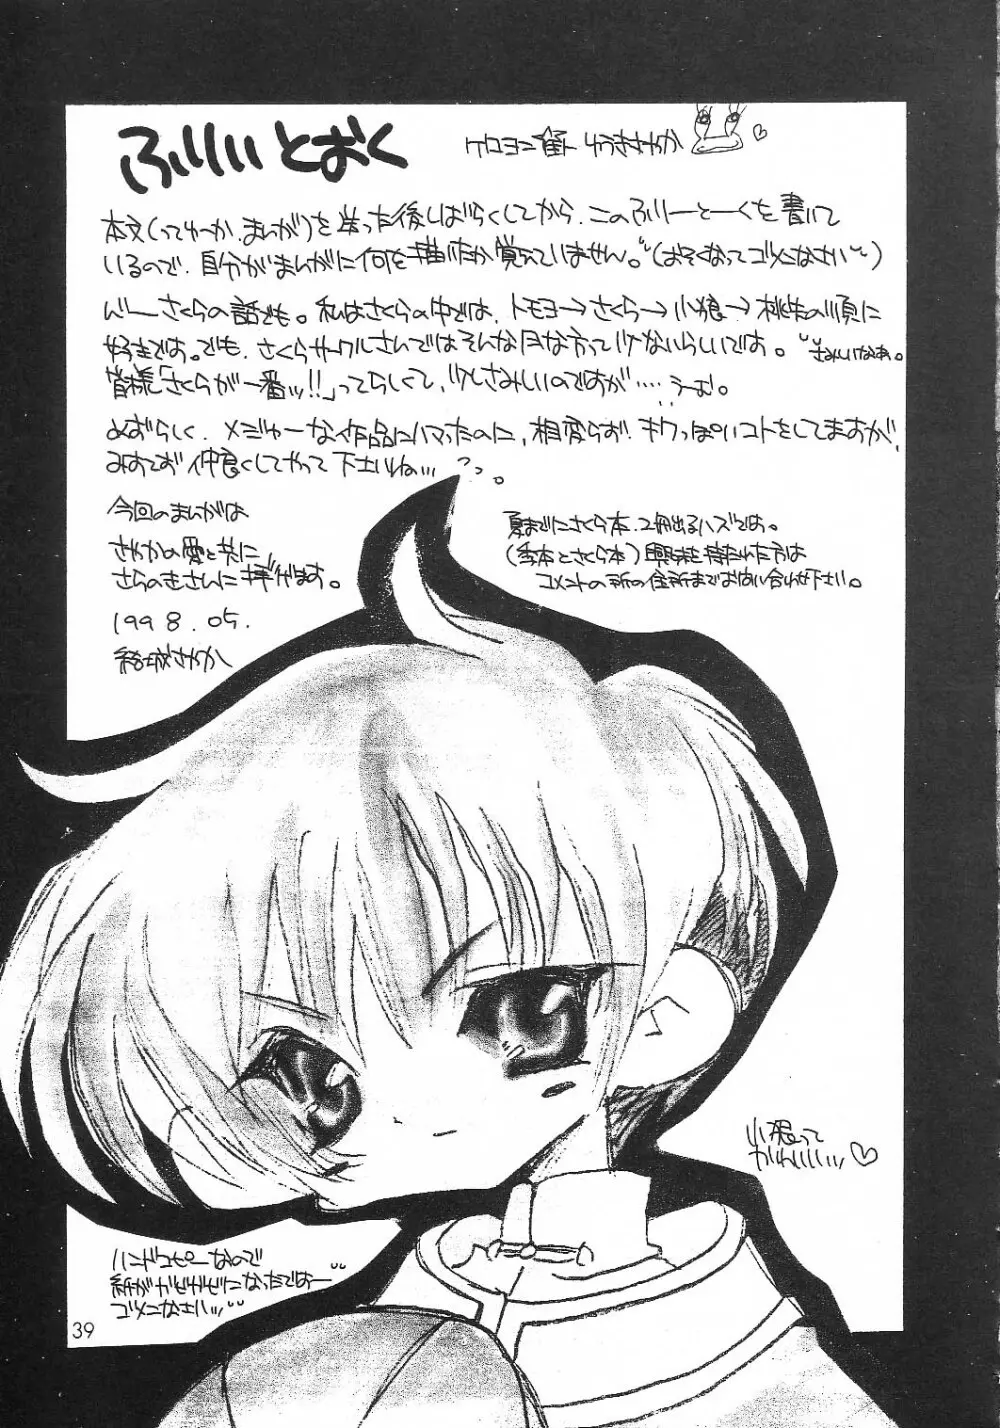 ふりーとおく
ケロヨン
本文(ってゆーか、まんが)を送った後しばらくしてから、このふりーとーくを書いて
いるので、自分がまんがに何を描いたか覚えていません。(おそくなってゴメンなさい)
さくらの話でも。私はさくらの中では、トモヨ→さくら→小狼→桃矢の順に
好きです。でも、さくらサークルさいではそんな方って少ないらしいです。さみしいなあ。
皆様「さくらが一番ッ!!」ってらしくて、少しさみしいのですが‥‥うーむ。
めずらしく、メジャーな作品にハマったのに、相変らず、キワっぽいコトをしてますが、
みすてず仲良くしてやって下さいね…
今回のまんがは
さやかの愛と共に
さらのきさんに捧げます。
1998.05.
結城さやか
夏までにさくら本、2冊出るハズです。
(季本とさくら本)興味を持たれた方は
コメントの所の住所までお問い合わせ下さい。
小狼って
かわいいいッ♡
ハンドコピーなので
紙がガビガビになったですー
ゴメンなさいッ
39